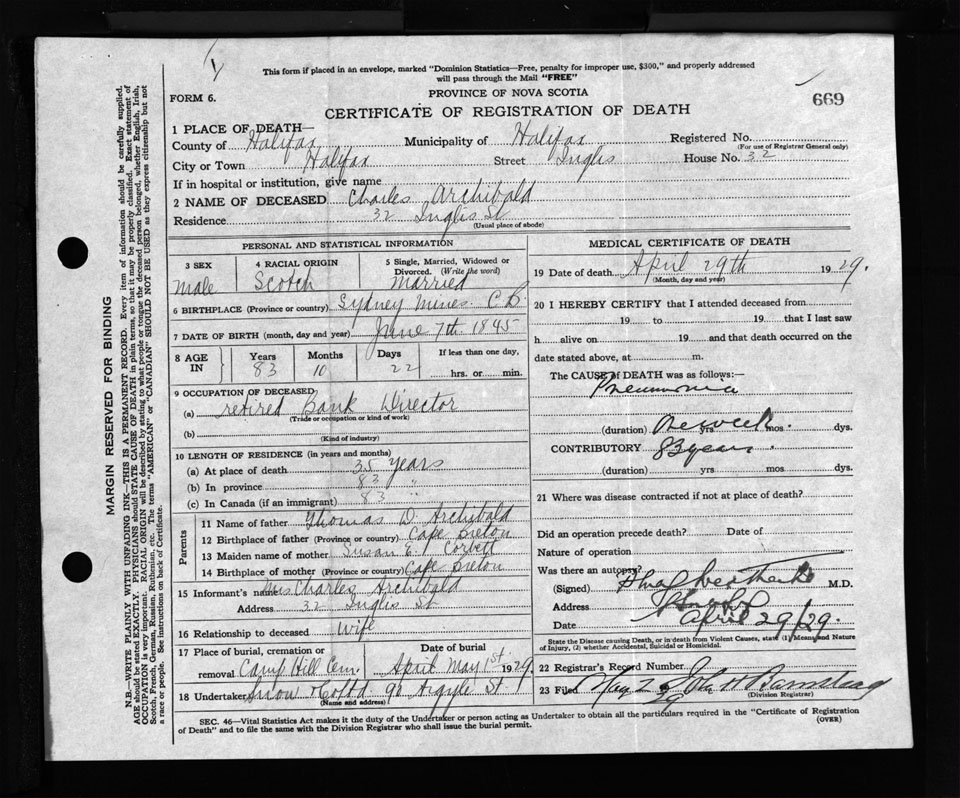 This form if placed in an envelope, marked "Dominion Statistics—Free, penalty for improper use, $300," and properly addressed
will pass through the Mail "FREE"
FORM 6.
PROVINCE OF NOVA SCOTIA
669
CERTIFICATE OF REGISTRATION OF DEATH
1 PLACE OF DEATH—
County of Halifax Municipality of Halifax Registered No.
(For use of Registrar General only)
City or Town Halifax Street Inglis House No. 32
If in hospital or institution, give name
2 NAME OF DECEASED Charles Archibald
Residence 32 Inglis St
(Usual place of abode)
PERSONAL AND STATISTICAL INFORMATION
3 SEX 4 RACIAL ORIGIN 5 Single, Married, Widowed or
Divorced. (Write the word)
Male Scotch Married
6 BIRTHPLACE (Province or country) Sydney Mines C.B.
7 DATE OF BIRTH (month, day and year) June 7th 1845
8 AGE IN Years Months Days If less than one day,
83 10 22 hrs. or min.
9 OCCUPATION OF DECEASED
(a) retired Bank Director
(Trade or occupation or kind of work)
(b)
(Kind of industry)
10 LENGTH OF RESIDENCE (in years and months)
(a) At place of death 35 years
(b) In province 83 "
(c) In Canada (if an immigrant) 83 "
Parents
11 Name of father Thomas D. Archibald
12 Birthplace of father (Province or country) Cape Breton
13 Maiden name of mother Susan E. Corbett
14 Birthplace of mother (Province or country) Cape Breton
15 Informant's name Mrs Charles Archibald
Address 32 Inglis St
16 Relationship to deceased wife
17 Place of burial, cremation or Date of burial
removal Camp Hill Cem. April May 1st 1929
18 Undertaker Snow & Co Ltd 90 Argyle St
(Name and address)
MEDICAL CERTIFICATE OF DEATH
19 Date of death April 29th 1929.
(Month, day and year)
20 I HEREBY CERTIFY that I attended deceased from
19 to 19 that I last saw
h alive on 19 and that death occurred on the
date stated above, at m.
The CAUSE of DEATH was as follows:—
Pneumonia
(duration) One week. yrs mos. dys.
CONTRIBUTORY 83 years.
(duration) yrs mos dys.
21 Where was disease contracted if not at place of death?
Did an operation precede death? Date of
Nature of operation
Was there an autopsy?
(Signed) M.D.
Address
Date April 29/29.
State the Disease causing Death, or in death from Violent Causes, state (1) Means and Nature
of Injury, (2) whether Accidental, Suicidal or Homicidal.
22 Registrar's Record Number
23 Filed May 2 29 John H Barnstead
(Division Registrar)
SEC. 46—Vital Statistics Act makes it the duty of the Undertaker or person acting as Undertaker to obtain all the particulars required in the "Certificate of Registration
of Death" and to file the same with the Division Registrar who shall issue the burial permit.
(OVER)
MARGIN RESERVED FOR BINDING
N.B.—WRITE PLAINLY WITH UNFADING INK—THIS IS A PERMANENT RECORD. Every item of information should be carefully supplied.
AGE should be stated EXACTLY. PHYSICIANS should STATE CAUSE OF DEATH in plain terms, so that it may be properly classified. Exact statement of
OCCUPATION is very important. RACIAL ORIGIN will be described by stating to what people or tongue the deceased person belonged, whether English, Irish,
Scotch, French, German, Russian, Ruthenian, etc. The terms "AMERICAN" or "CANADIAN" SHOULD NOT BE USED as they express citizenship but not
a race or people. See instructions on back of Certificate.